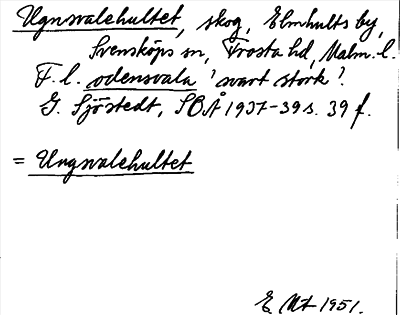 Ugnsvalehultet, skog, Elmhults by,
Svensköps sn, Frosta hd, Malm. l.
F. l. odensvala 'svart stork'.
G. Sjöstedt, SOÅ 1937-39 s. 39 f.
= Ungsvalehultet
1951.